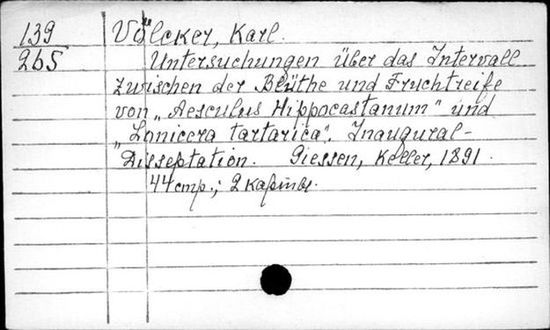 139 Völcker, Karl.
265 Untersuchungen über das Intervall
zwischen der Blüthe und Fruchtreife
von „Aesculus Hippocastanum" und
„Lonicera tartarica". Inaugural-
Disseptation. Giessen, Keller, 1891.
44 стр.; 2